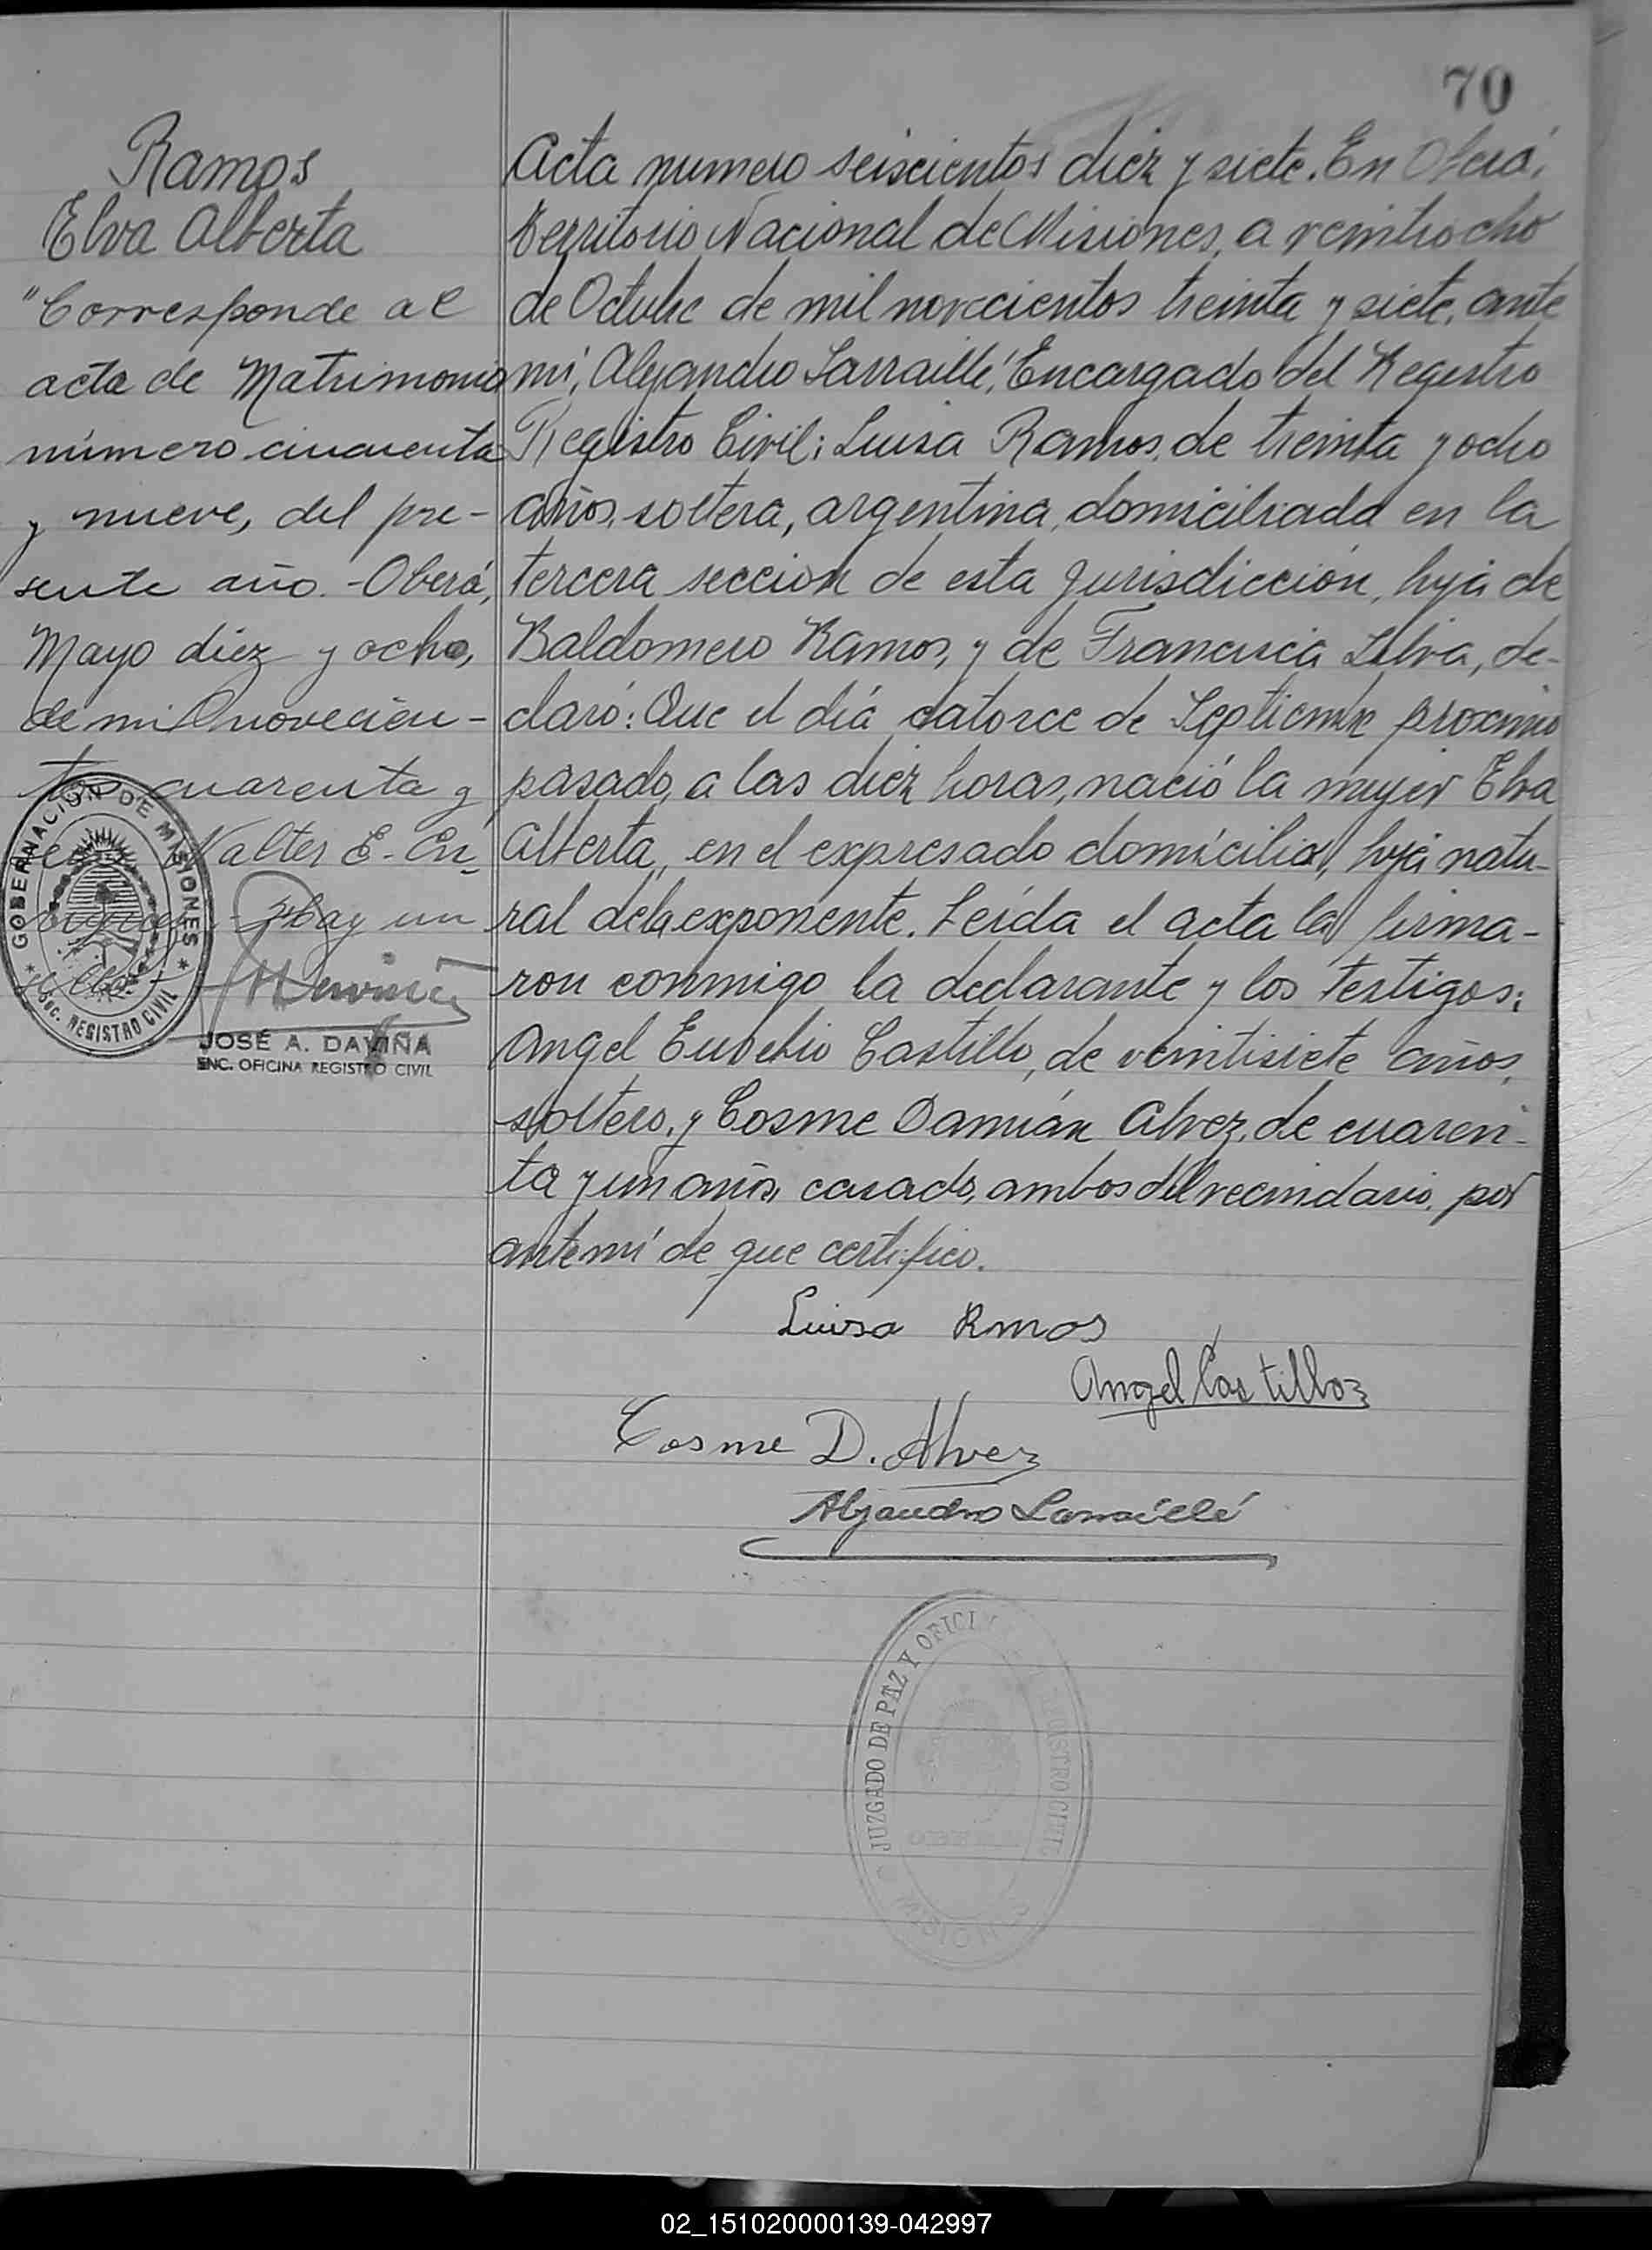 70
Ramos
Elva Alberta
"Corresponde al
acta de Matrimonio
número cincuenta
y nueve, del pre-
sente año. - Oberá,
Mayo diez y ocho,
de mil novecien-
tos cuarenta y
Walter E. En
Hay un
sello
GOBERNACIÓN DE MISIONES
SEC. REGISTRO CIVIL
JOSÉ A. DAVIÑA
ENC. OFICINA REGISTRO CIVIL
Acta numero seiscientos diez y siete. En Oberá,
Territorio Nacional de Misiones, a veintiocho
de Octubre de mil novecientos treinta y siete, ante
mí, Alejandro Larraillé, Encargado del Registro
Registro Civil; Luisa Ramos, de treinta y ocho
años, soltera, argentina, domiciliada en la
tercera sección de esta jurisdicción, hija de
Baldomero Ramos, y de Francisca Silva, de-
claró: Que el día catorce de Septiembre proximo
pasado, a las diez horas, nació la mujer Elva
Alberta, en el expresado domicilio, hija natu-
ral de la exponente. Leída el acta la firma-
ron conmigo la declarante y los testigos;
Angel Eusebio Castillo, de veintisiete años,
soltero, y Cosme Damián Alvez, de cuaren-
ta y un años, casado, ambos del vecindario, por
ante mí de que certifico.
Luisa Rmos
Angel Castillo
Cosme D. Alvez
Alejandro Larraillé
JUZGADO DE PAZ Y OFICI
REGISTRO CIVIL
MISIONES
02_151020000139-042997